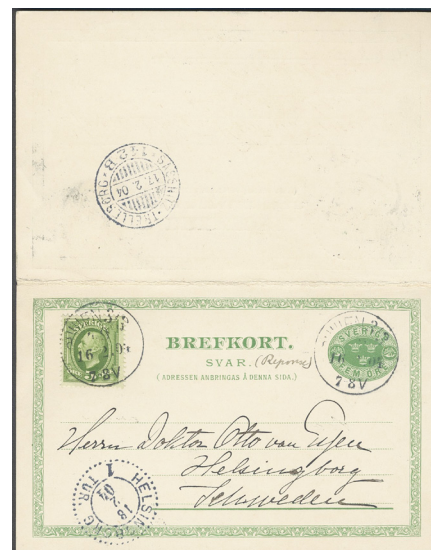 142 B
17. 2. 04
WIEN 3/2
16
7 8V
BREFKORT.
SVAR. (Reponse)
(ADRESSEN ANBRINGAS Å DENNA SIDA.)
SVERIGE
FEM ÖRE
16
7 8V
Herrn Doktor Otto von
Helsingborg
Schweden
HELSINGBORG
1 TUR
18
2
04